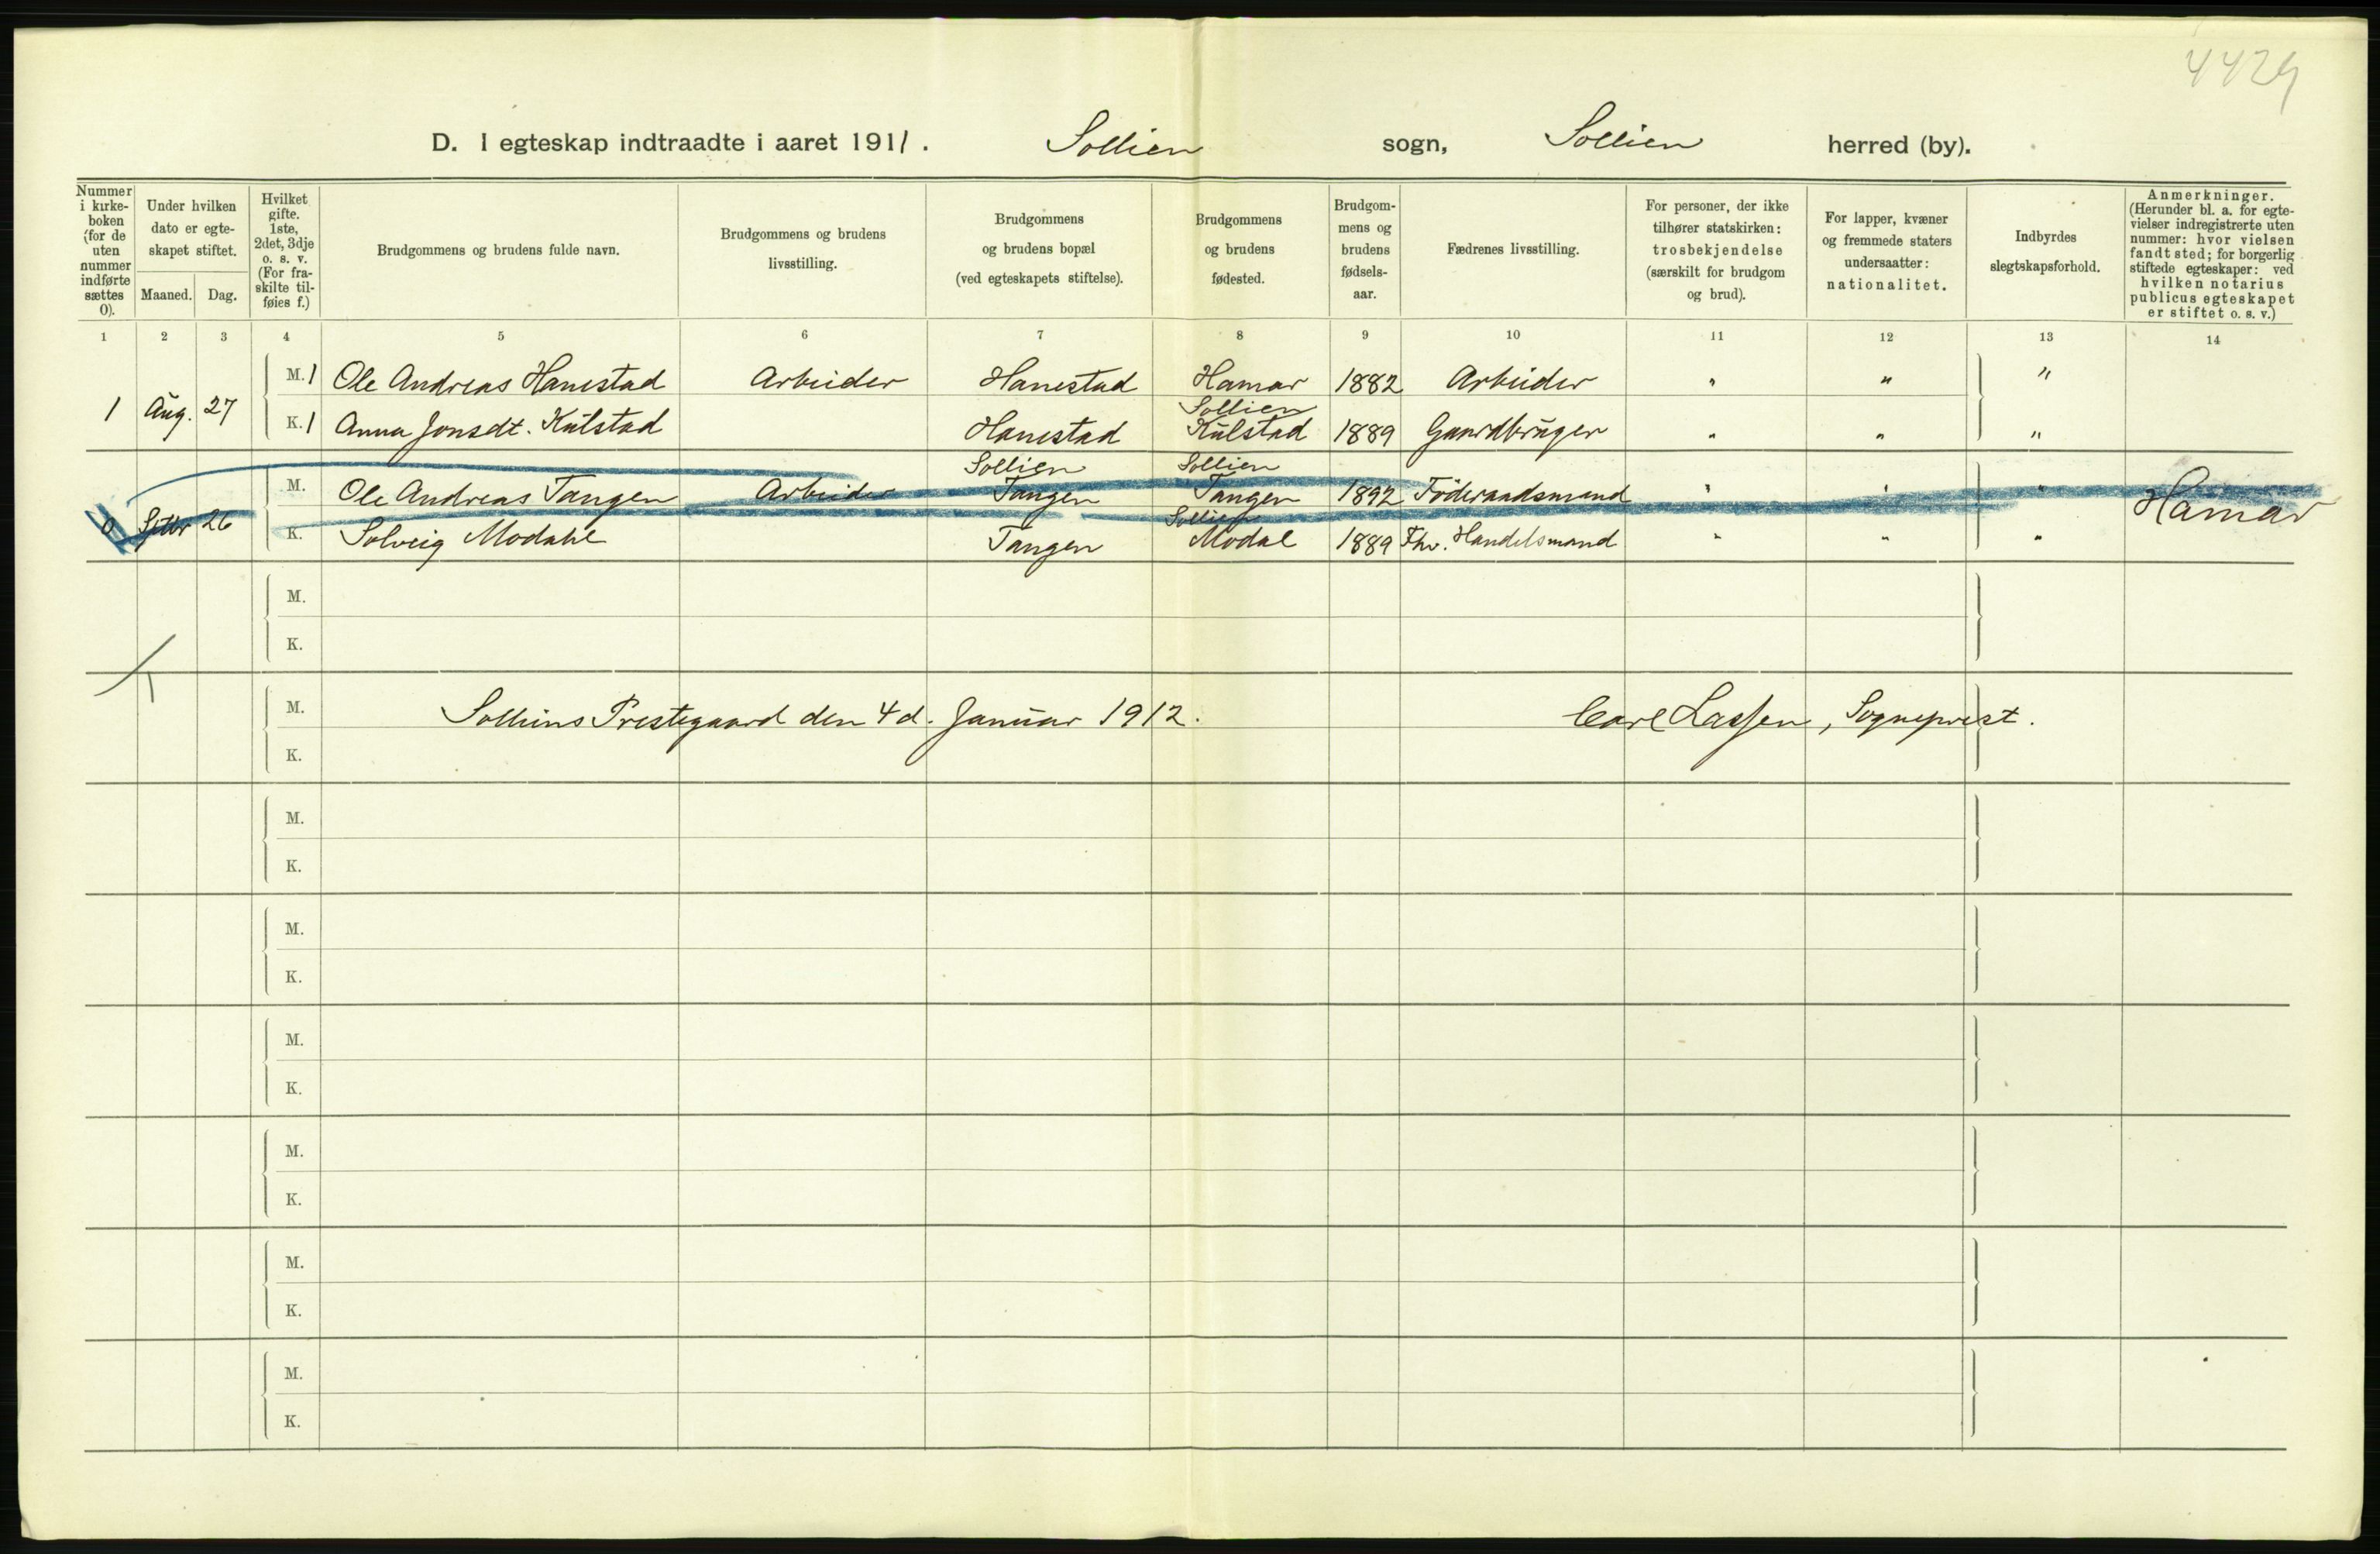 4429
D. I egteskap indtraadte i aaret 1911. Sollien sogn, Sollien herred (by).
Nummer i kirkeboken (for de uten nummer indførte sættes 0).
Under hvilken dato er egteskapet stiftet.
Maaned. Dag.
Hvilket gifte. 1ste, 2det, 3dje o. s. v. (For fraskilte tilføies f.)
Brudgommens og brudens fulde navn.
Brudgommens og brudens livsstilling.
Brudgommens og brudens bopæl (ved egteskapets stiftelse).
Brudgommens og brudens fødested.
Brudgommens og brudens fødselsaar.
Fædrenes livsstilling.
For personer, der ikke tilhører statskirken: trosbekjendelse (særskilt for brudgom og brud).
For lapper, kvæner og fremmede staters undersaatter: nationalitet.
Indbyrdes slegtskapsforhold.
Anmerkninger. (Herunder bl. a. for egtevielser indregistrerte uten nummer: hvor vielsen fandt sted; for borgerlig stiftede egteskaper: ved hvilken notarius publicus egteskapet er stiftet o. s. v.)
1 2 3 4 5 6 7 8 9 10 11 12 13 14
M. 1 Ole Andreas Hanestad Arbeider Hanestad Hamar 1882 Arbeider " " "
1 Aug. 27
K. 1 Anna Jonsdt. Kulstad Hanestad Sollien Kulstad 1889 Gaardbruger " " "
M. Ole Andreas Tangen Arbeider Sollien Tangen Sollien Tangen 1892 Føderaadsmand " " " Hamar
0 Sptbr 26
K. Solveig Modahl Tangen Sollien Modal 1889 Fhv. Handelsmand " " "
M.
K.
M.
Solliens Prestegaard den 4d. Januar 1912. Carl Lassen, Sogneprest.
K.
M.
K.
M.
K.
M.
K.
M.
K.
M.
K.
M.
K.